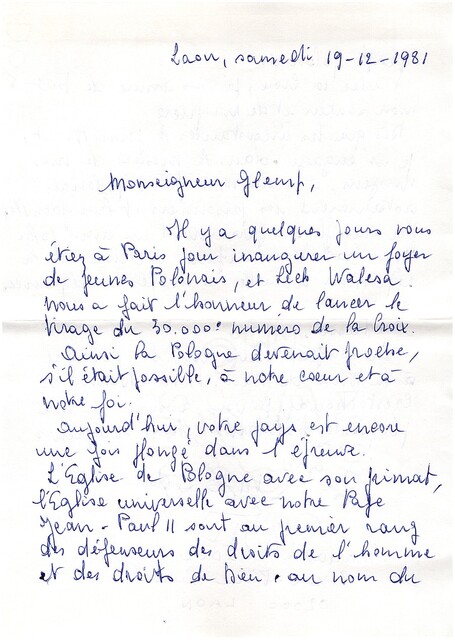 Laon, samedi 19-12-1981
Monseigneur Glemp,
Il y a quelques jours vous
étiez à Paris pour inaugurer un foyer
de jeunes Polonais, et Lech Walesa
nous a fait l'honneur de lancer le
tirage du 30.000e numéro de la Croix.
Ainsi la Pologne devenait proche,
s'il était possible, à notre coeur et à
notre foi.
Aujourd'hui, votre pays est encore
une fois plongé dans l'épreuve.
L'Eglise de Pologne avec son primat,
l'Eglise universelle avec notre Pape
Jean-Paul II sont au premier rang
des défenseurs des droits de l'homme
et des droits de Dieu. au nom du